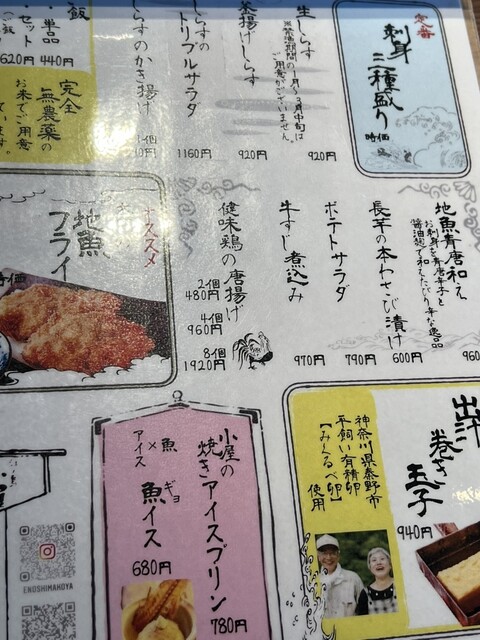 定番
刺身三種盛り
時価
生しらす
※禁漁期間の1月〜3月中旬は
ご用意がございません。
920円
釜揚げしらす
920円
しらすの
トリプルサラダ
1160円
しらすのかき揚げ
1個
飯
・単品
440円
・セット
620円
完全
無農薬の
お米でご用意
しています。
地魚青唐和え
お刺身を青唐辛子と
醤油麹で和えたぴり辛な逸品
960
長芋の本わさび漬け
600円
ポテトサラダ
790円
牛すじ煮込み
970円
健味鶏の唐揚げ
2個
480円
4個
960円
8個
1920円
オススメ
地魚
フライ
時価
出汁
巻き
玉子
940円
神奈川県秦野市
平飼い有精卵
【みくるべ卵】
使用
小屋の
焼きアイスブリン
780円
魚
×
アイス
魚イス
ギョ
680円
ENOSHIMAKOYA